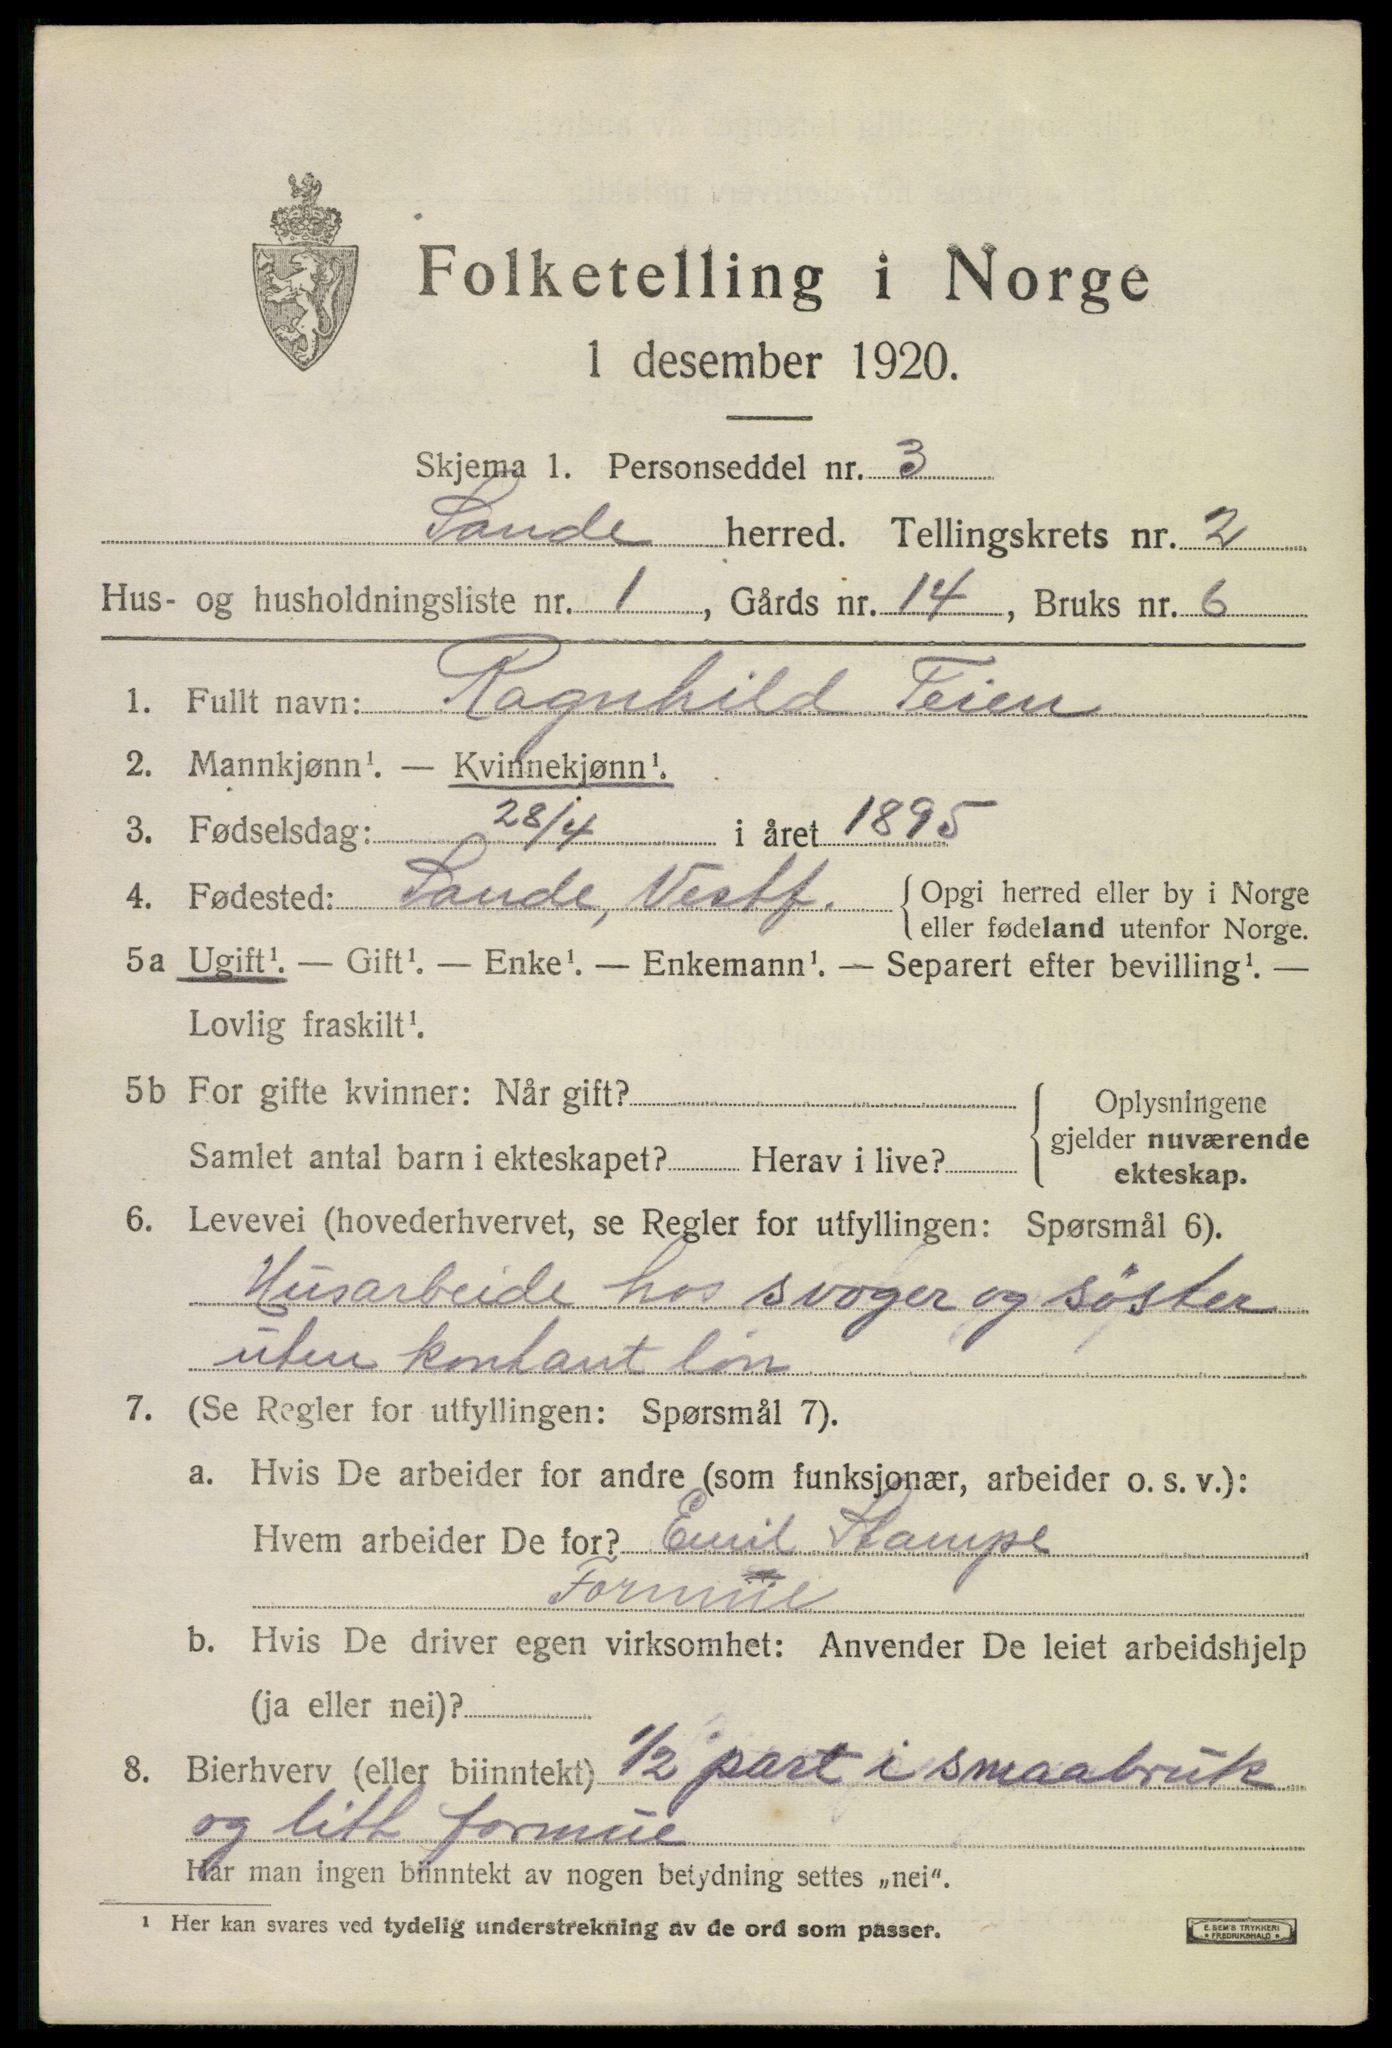 Folketelling i Norge
1 desember 1920.
Skjema 1. Personseddel nr. 3
Sande herred. Tellingskrets nr. 2
Hus- og husholdningsliste nr. 1, Gårds nr. 14, Bruks nr. 6
1. Fullt navn: Ragnhild Teien
2. Mannkjønn¹. — Kvinnekjønn¹.
3. Fødselsdag: 28/4 i året 1895
4. Fødested: Sande, Vestf. { Opgi herred eller by i Norge
eller fødeland utenfor Norge.
5a Ugift¹. — Gift¹. — Enke¹. — Enkemann¹. — Separert efter bevilling¹. —
Lovlig fraskilt¹.
5b For gifte kvinner: Når gift?
Samlet antal barn i ekteskapet? Herav i live?
{ Oplysningene
gjelder nuværende
ekteskap.
6. Levevei (hovederhvervet, se Regler for utfyllingen: Spørsmål 6).
Husarbeide hos svoger og søster
uten kontant løn
7. (Se Regler for utfyllingen: Spørsmål 7).
a. Hvis De arbeider for andre (som funksjonær, arbeider o. s. v.):
Hvem arbeider De for? Emil Stampe
Formue
b. Hvis De driver egen virksomhet: Anvender De leiet arbeidshjelp
(ja eller nei)?
8. Bierhverv (eller biinntekt) 1/2 part i smaabruk
og litt formue
Har man ingen biinntekt av nogen betydning settes „nei".
¹ Her kan svares ved tydelig understrekning av de ord som passer.
E. SEM'S TRYKKERI
FREDRIKSHALD